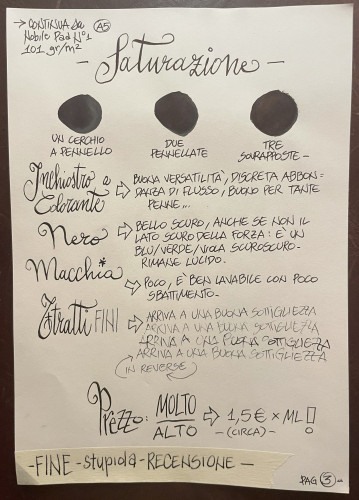 → CONTINUA da A5
Nobile Pad N°1
101 gr/m²
- Saturazione -
UN CERCHIO
A PENNELLO
DUE
PENNELLATE
TRE
SOVRAPPOSTE -
Inchiostro a
Colorante
⇨ BUONA VERSATILITÀ, DISCRETA ABBON=
DANZA DI FLUSSO, BUONO PER TANTE
PENNE...
Nero
⇨ BELLO SCURO, ANCHE SE NON IL
LATO SCURO DELLA FORZA: È UN
BLU/VERDE/VIOLA SCUROSCURO-
RIMANE LUCIDO.
Macchia
⇨ POCO, E' BEN LAVABILE CON POCO
SBATTIMENTO-
Tratti FINI
⇨ ARRIVA A UNA BUONA SOTTIGLIEZZA
ARRIVA A UNA BUONA SOTTIGLIEZZA
ARRIVA A UNA BUONA SOTTIGLIEZZA
ARRIVA A UNA BUONA SOTTIGLIEZZA
IN REVERSE
Prezzo: MOLTO ALTO ⇨ 1,5€ x ML!
-(CIRCA)-
-FINE-stupida-RECENSIONE-
PAG 3-